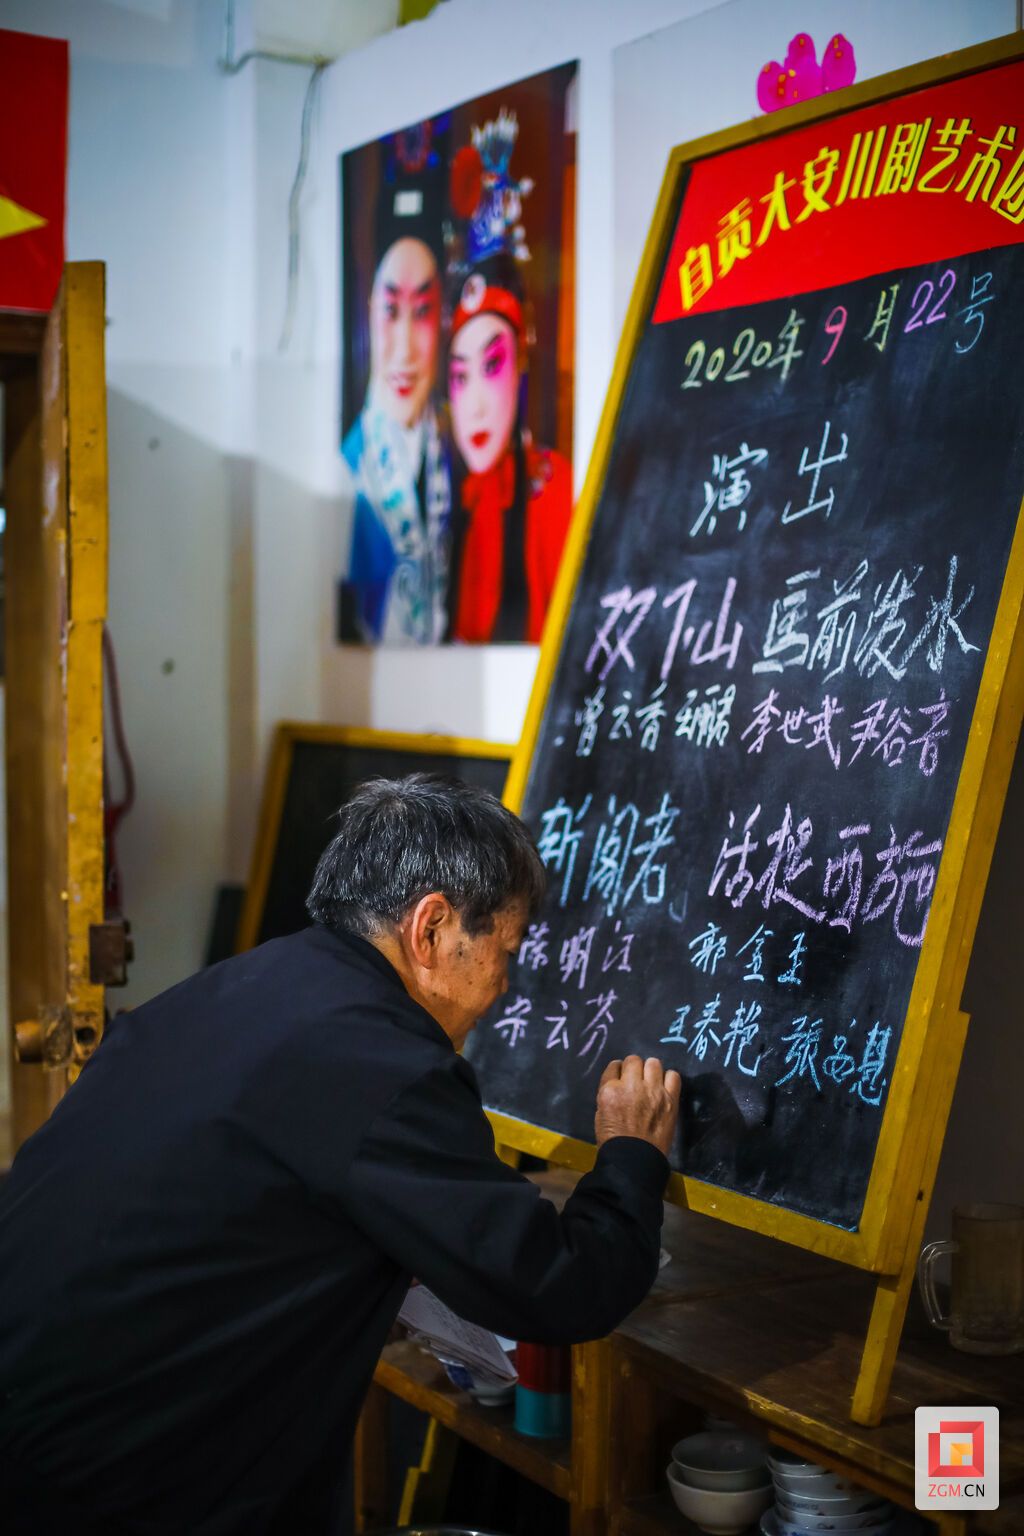 自贡大安川剧艺术团
2020年9月22号
演出
双下山 马前泼水
曾云香 王鹏 李世武 尹谷音
斩阎君 活捉西施
陈明江 郭金玉
宋云芬 王春艳 張慧
ZGM.CN